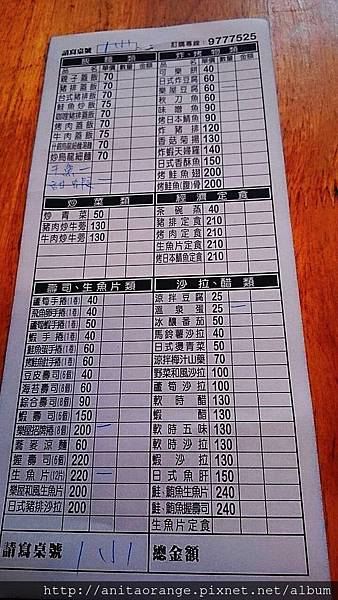 請寫桌號 訂購專線:9777525
飯麵類
品名 單價 數量 金額
親子蓋飯 70
豬排蓋飯 70
台式豬排飯 70
鮭魚炒飯 75
咖哩豬排蓋飯 70
烤肉蓋飯 70
牛肉蓋飯 75
什錦烏龍細湯麵 70
炒烏龍細麵 70
炒菜類
炒青菜 50
豬肉炒牛蒡 130
牛肉炒牛蒡 130
壽司、生魚片類
蘆筍手捲(1卷) 40
飛魚卵手捲(1卷) 40
蘆筍蝦手捲(1卷) 50
蝦手捲(1卷) 40
鮭魚蛋手捲(1卷) 60
烤鮭魚肚手捲(1卷) 60
豆皮壽司(6個) 40
海苔壽司(8個) 60
綜合壽司(8個) 90
蝦壽司(6個) 150
樂屋招牌捲(8個) 200
蕎麥涼麵 60
握壽司(6個) 220
生魚片(12片) 220
樂屋和風生魚片 200
日式豬排沙拉 200
炸、烤物類
品名 單價 數量 金額
可樂餅 40
日式炸豆腐 60
樂屋豆腐 60
秋刀魚 60
味噌魚 90
烤日本鯖魚 90
炸豬排 120
香菇菊揚 130
炸蝦天婦羅 140
日式香酥魚 150
烤鮭魚翅 200
烤鮭魚(腹)骨 200
經濟定食
茶碗蒸 40
豬排定食 210
烤肉定食 210
生魚片定食 210
烤日本鯖魚定食 210
沙拉、醋類
涼拌豆腐 25
溫泉蛋 25
冰釀番茄 50
馬鈴薯沙拉 40
日式燙青菜 50
涼拌梅汁山藥 70
野菜和風沙拉 100
蘆筍沙拉 100
軟時醋 130
蝦醋 130
軟時五味 130
軟時沙拉 130
蝦沙拉 130
日式魚肝 150
鮭、鮪魚生魚片 240
鮭、鮪魚握壽司 240
生魚片定食
請寫桌號 總金額
http://anitaorange.pixnet.net/album